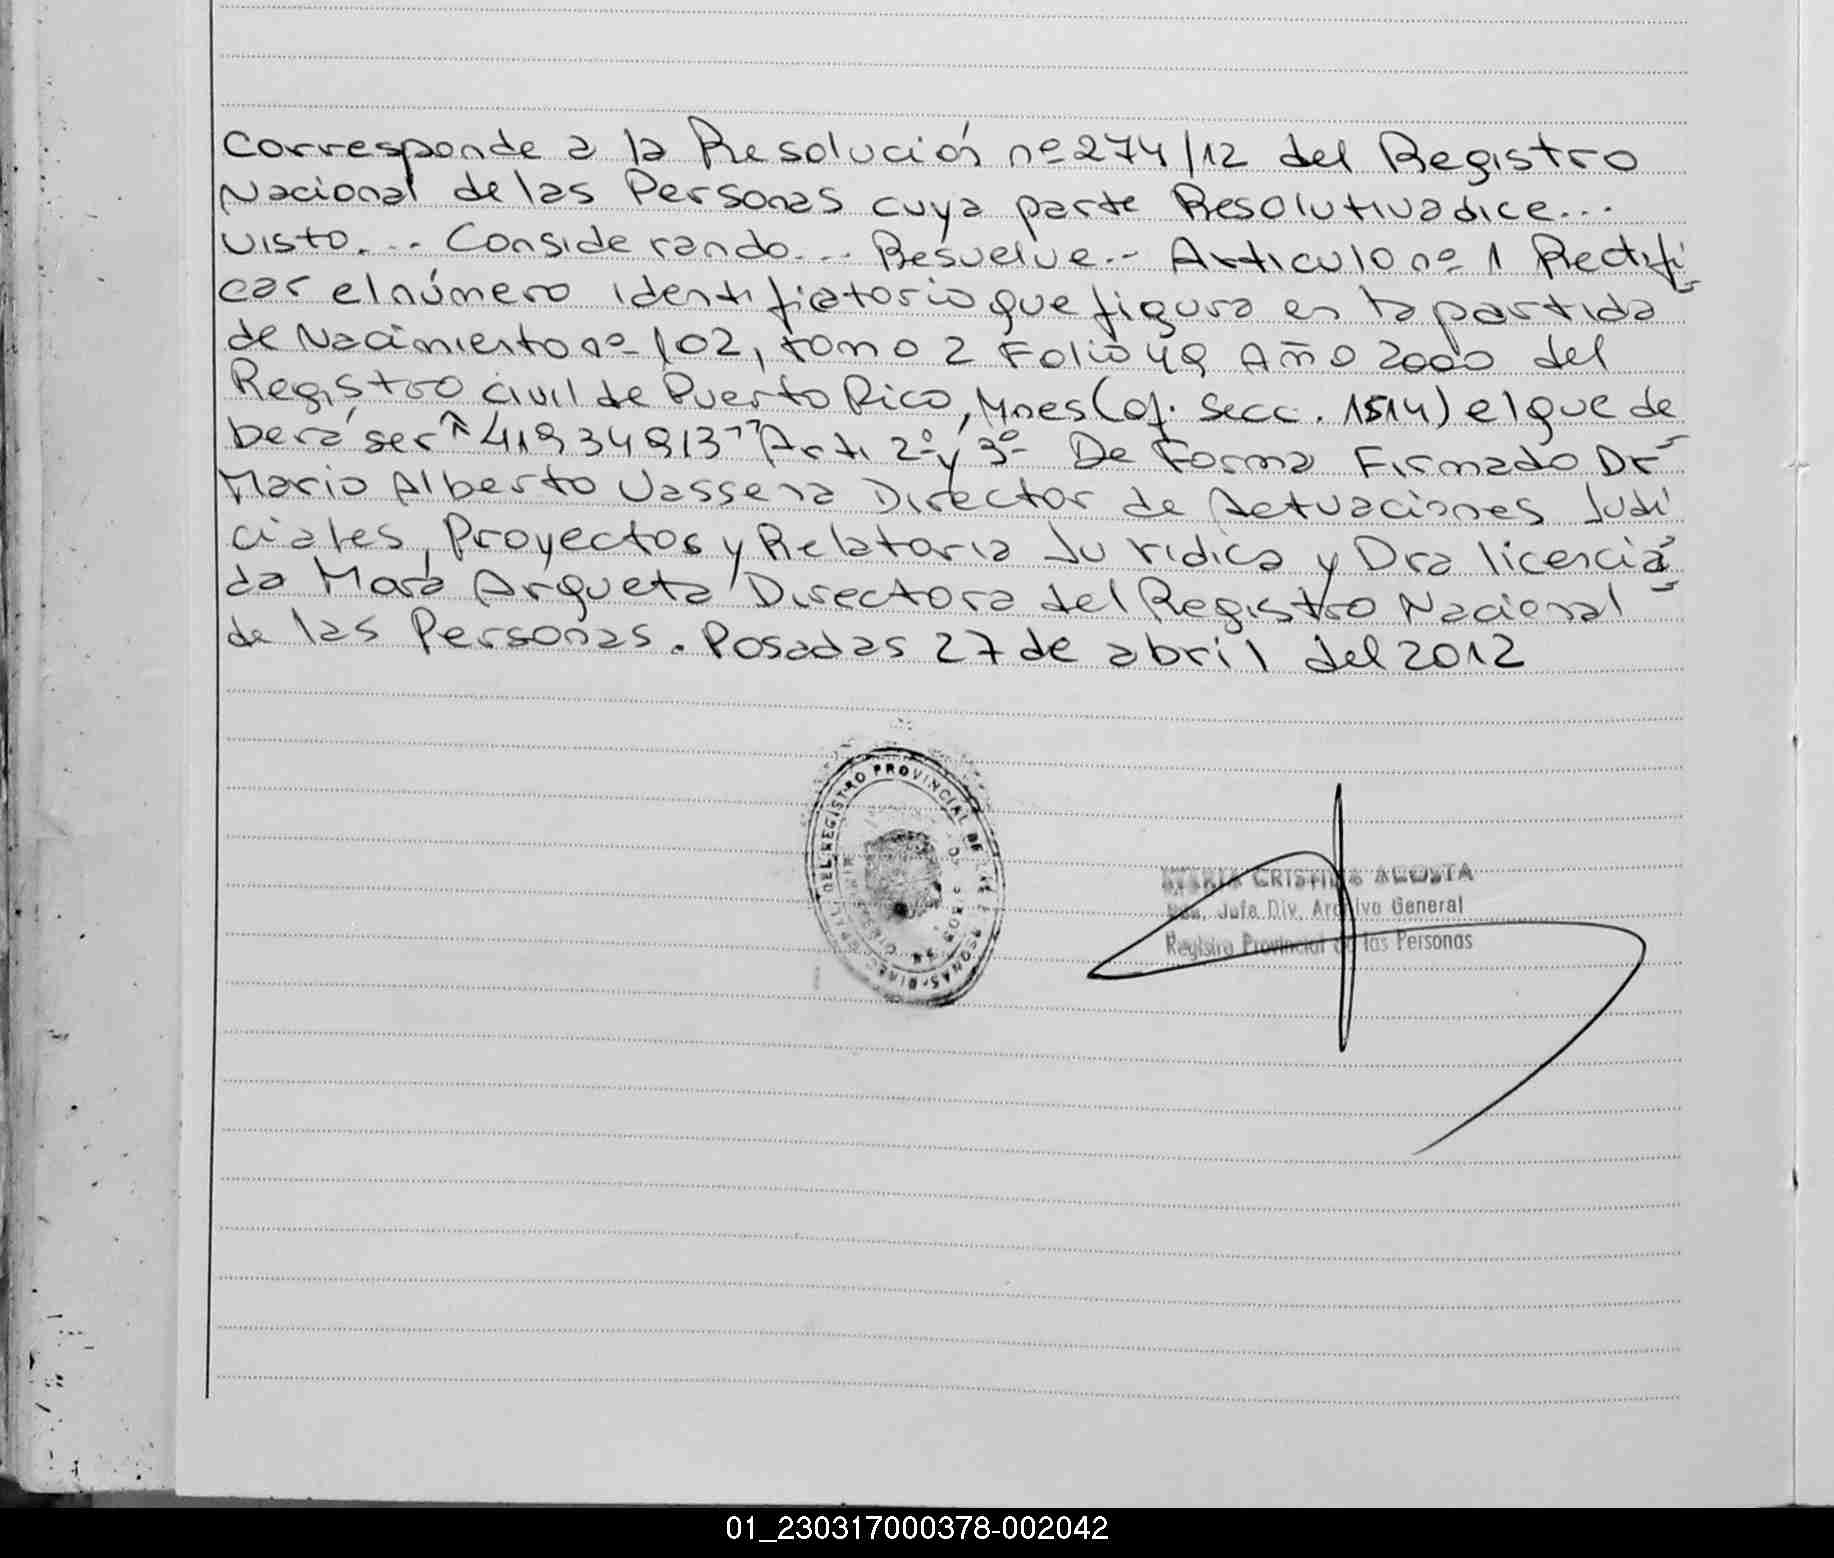 Corresponde a la Resolución nº 274/12 del Registro
Nacional de las Personas cuya parte Resolutiva dice...
Visto... Considerando... Resuelve.- Articulo nº 1 Rectifi
car el número identificatorio que figura en la partida
de Nacimiento nº 102, tomo 2 Folio 49 Año 2000 del
Registro civil de Puerto Rico, Mnes (of. Secc. 1514) el que de
berá ser "41934913" Arti 2º y 3º De Forma Firmado Dr
Mario Alberto Vassena Director de Actuaciones Judi
ciales, Proyectos y Relatoria Juridica y Dra licencia
da Mora Arqueta Directora del Registro Nacional
de las Personas. Posadas 27 de abril del 2012
DEL REGISTRO PROVINCIAL DE LAS PERSONAS
MARIA CRISTINA ACOSTA
Jefa Div. Archivo General
Registro Provincial de las Personas
01_230317000378-002042